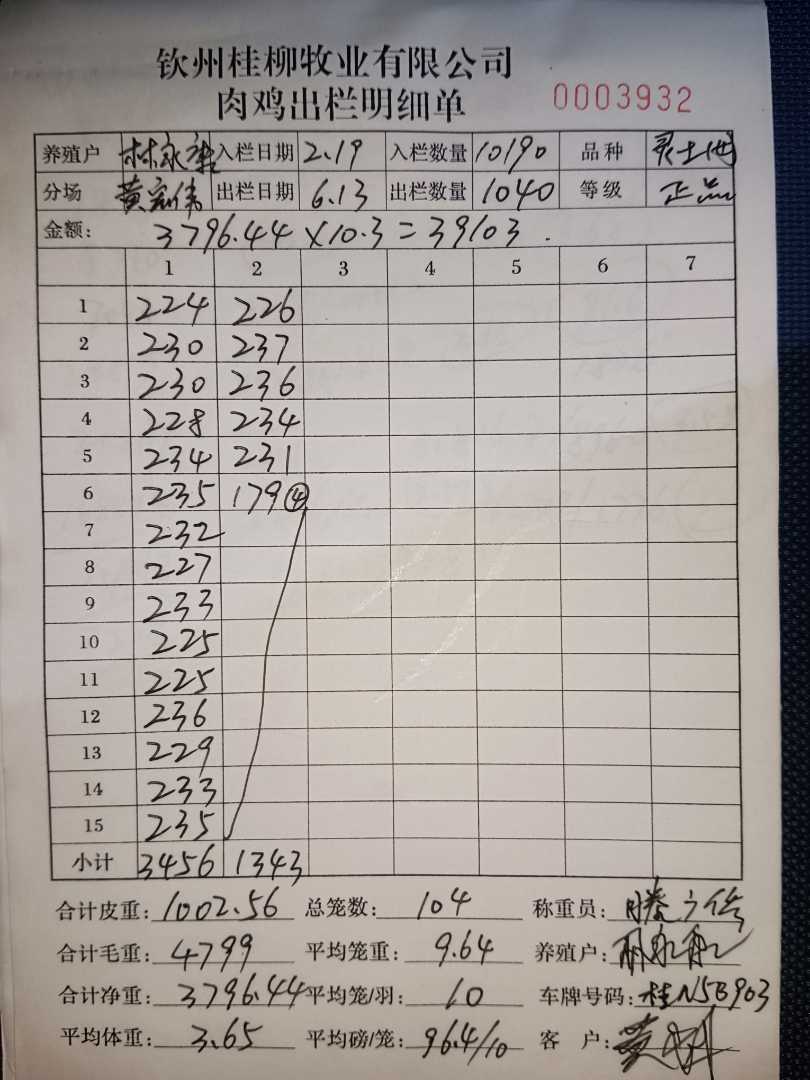 钦州桂柳牧业有限公司
肉鸡出栏明细单 0003932
养殖户 林永 入栏日期 2.19 入栏数量 10190 品种 灵土
分场 黄宏伟 出栏日期 6.13 出栏数量 1040 等级 正品
金额: 3796.44×10.3=39103.
1 2 3 4 5 6 7
1 224 226
2 230 237
3 230 236
4 228 234
5 234 231
6 235 179④
7 232
8 227
9 233
10 225
11 225
12 236
13 229
14 233
15 235
小计 3456 1343
合计皮重: 1002.56 总笼数: 104 称重员:
合计毛重: 4799 平均笼重: 9.64 养殖户:
合计净重: 3796.44 平均笼/羽: 10 车牌号码: 桂N5B903
平均体重: 3.65 平均磅/笼: 96.4/10 客 户: 黄